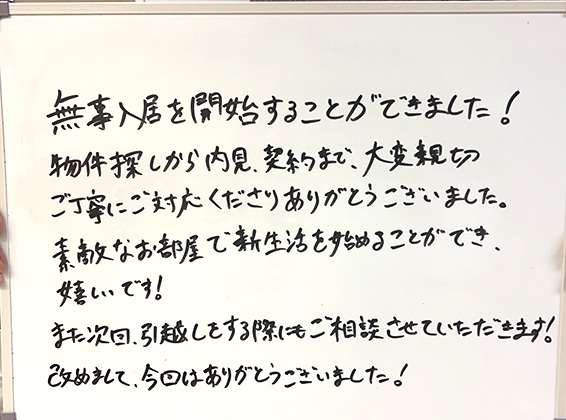 無事入居を開始することができました！
物件探しから内見、契約まで、大変親切
ご丁寧にご対応くださりありがとうございました。
素敵なお部屋で新生活を始めることができ、
嬉しいです！
また次回、引越しをする際にもご相談させていただきます！
改めまして、今回はありがとうございました！